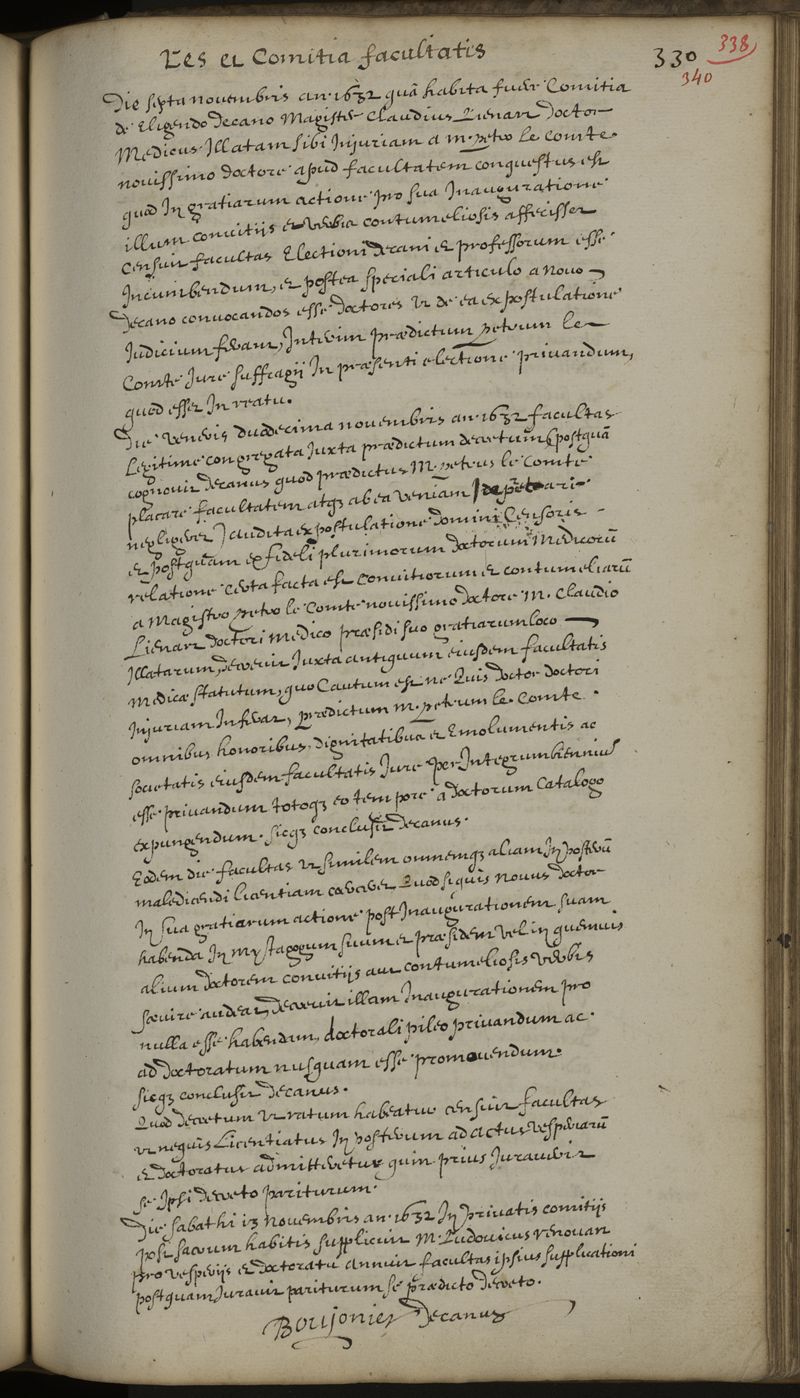 Res et Comitia facultatis
330 338
340
Die sexta novembris an. 1632 quâ habita fuer. Comitia
de Eligendo Decano Magister Claudius Lienart Doctor
Medicus Illatam sibi Injuriam a M. petro le Comte
novissimo doctore apud facultatem conquestus est
quod In gratiarum actione pro sua Inauguratione
illum convitijs et verbis contumeliosis affecisset
Censuit facultas Electioni decani et professorum esse
Incumbendum, et postea speciali articulo a novo
Decano convocandos esse doctores ut de ea expostulatione
Judicium ferant, Interim prædictum petrum le
Comte Jure suffragij In præsenti electione privandum,
quod esset In reatu.
Die Veneris duodecima novembris an. 1632 facultas
Legitime congregata Juxta prædictum decretum (postquā
cognovit decanus quod prædictus M. petrus le Comte
placare facultatem atq; ab ea veniam
negligeret) audita expostulatione domini Censoris
et postquam ex fideli plurimorum doctorum Medicorū
relatione certa facta est convitiorum et contumeliarū
a Magistro petro le Comte novissimo doctore M. Claudio
Lienart doctori Medico præsidi suo gratiarum loco
Illatarum, decrevit Juxta antiquum eiusdem facultatis
Medicæ statutum, quo Cautum est ne Quis doctor doctori
Injuriam Inferat, prædictum M. petrum le Comte
omnibus honoribus, dignitatibus et Emolumentis ac
societatis eiusdem facultatis Jure per Integrum bienniū
esse privandum totoq; eo tempore a doctorum Catalogo
expungendum. sicq; conclusit decanus.
Eodem die facultas ut similem omnemq; aliam In posterū
maledicendi licentiam caveret Quod si quis novus doctor
In sua gratiarum actione post Inaugurationem suam
habenda In mystagogum suum et præsidem vel in quemvis
alium doctorem convitijs aut contumeliosis verbis
sævire audeat, decrevit illam Inaugurationem pro
nulla esse habendam, doctorali pileo privandum ac
ad doctoratum nusquam esse promovendum.
sicq; conclusit Decanus.
Quod decretum ut ratum habeatur censuit facultas
ut nequis Licentiatus In posterum ad actus vesperiarū
et doctoratus admitteretur quin prius Juraverit
se Ipsi decreto pariturum.
Die sabathi 13 Novembris an. 1632 In privatis comitijs
post sacrum habitis supplicuit M. Ludovicus renouart
pro vesperijs et doctoratu annuit facultas ipsius supplicationi
postquam Juravit pariturum se prædicto decreto.
Decanus